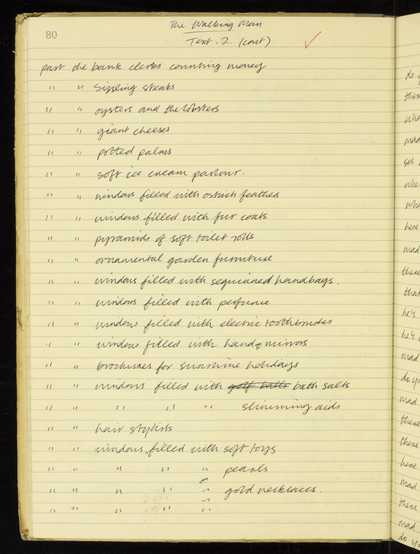 80
The Walking Man
Text. 2 (cont)
past the bank clerks counting money
" " sizzling steaks
" " oysters and the lobsters
" " giant cheeses
" " potted palms
" " soft ice cream parlour.
" " windows filled with ostrich feather
" " windows filled with fur coats
" " pyramids of soft toilet rolls
" " ornamental garden furniture
" " windows filled with sequinned handbags.
" " windows filled with perfume
" " windows filled with electric toothbrushes
" " windows filled with hand mirrors
" " brochures for sunshine holidays
" " windows filled with golf balls bath salts
" " " " " slimming aids
" " hair stylists
" " windows filled with soft toys
" " " " " pearls
" " " " " gold necklaces.
" " " " "